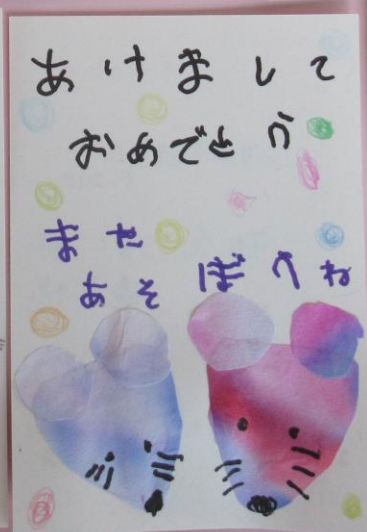 あけまして
おめでとう
また
あそぼうね